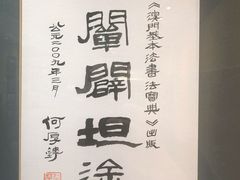 《澳門基本法書法寶典》出版
闡闢坦途
公元二〇〇九年三月
何厚鏵